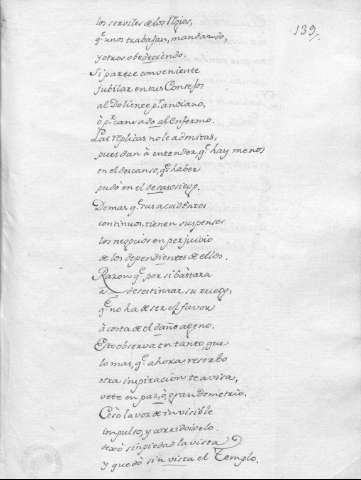 139
los serviles de los Ilojos,
q.e unos trabajan, mandando,
y otros obedeciendo.
Si parece conveniente
jubilar en tus Consejos
al Doliente p.r anciano,
ò p.r cansado al enfermo.
Las replicas no le admitas,
pues dan à entender q.e hay menos
en el descanso, q.e haber
pudo en el desasosiego.
Demas q.e sus accidentes
continuos, tienen suspensos
los negocios en perjuicio
de los dependientes de ellos.
Razon q.e por si bastara
à desestimar su ruego,
q.e no ha de ser el favor
à costa de el daño ageno.
Esto observa en tanto que
lo mas, q.e ahora reservo
otra inspiracion te avisa,
vete en paz, ò gran demetrio.
Cesò la voz de invisible
impulso, y corrido velo
dexò sin piedad la vista
y quedò sin vista el Templo.